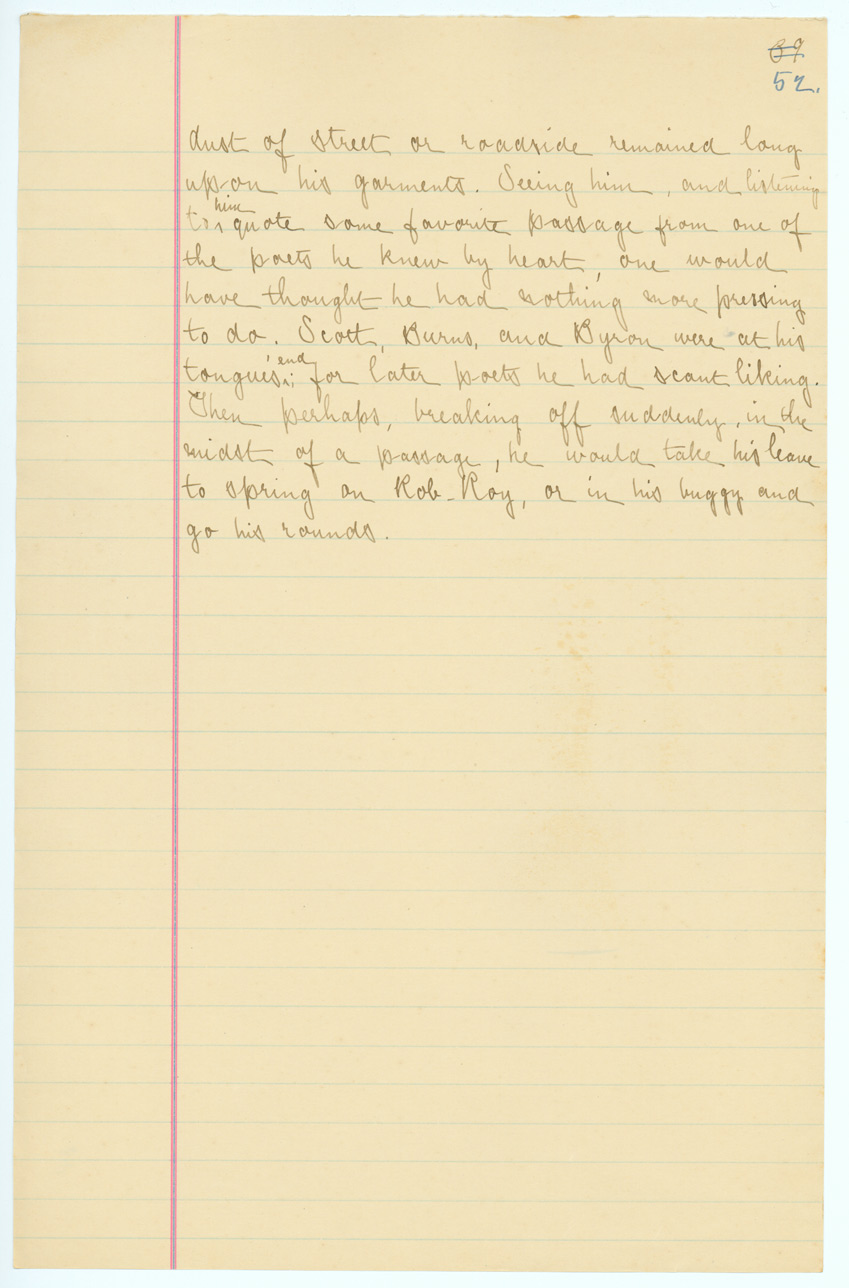 39
52.
dust of street or roadside remained long
upon his garments. Seeing him, and listening
to him quote some favorite passage from one of
the poets he knew by heart, one would
have thought he had nothing more pressing
to do. Scott, Burns, and Byron were at his
tongue's end; for later poets he had scant liking.
Then perhaps, breaking off suddenly, in the
midst of a passage, he would take his leave
to spring on Rob-Roy, or in his buggy and
go his rounds.